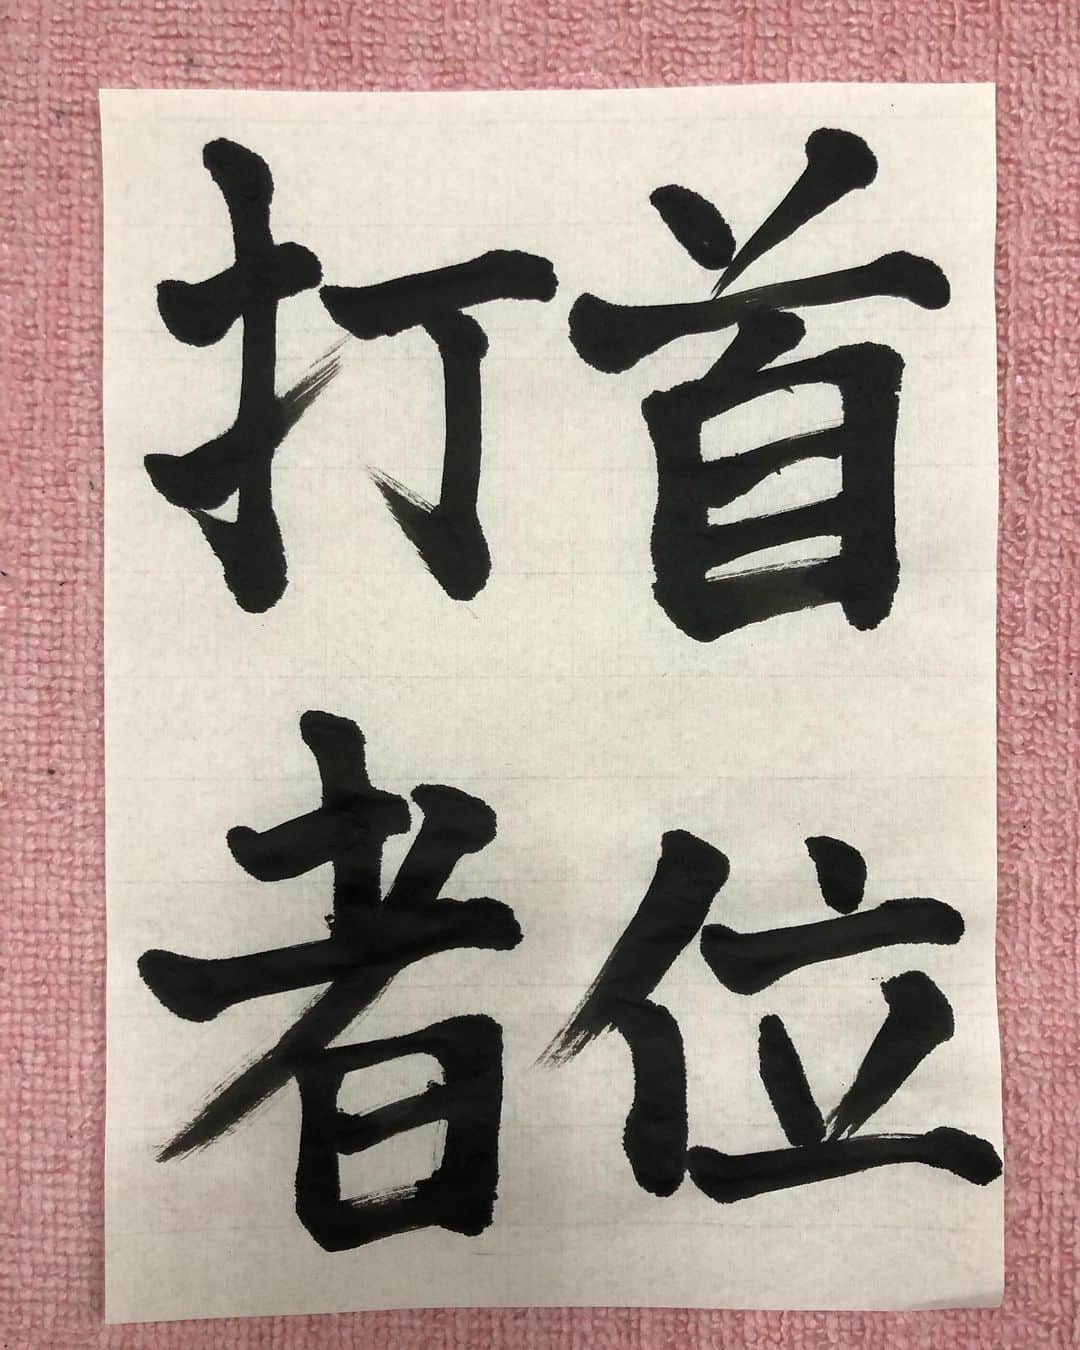 首位
打者